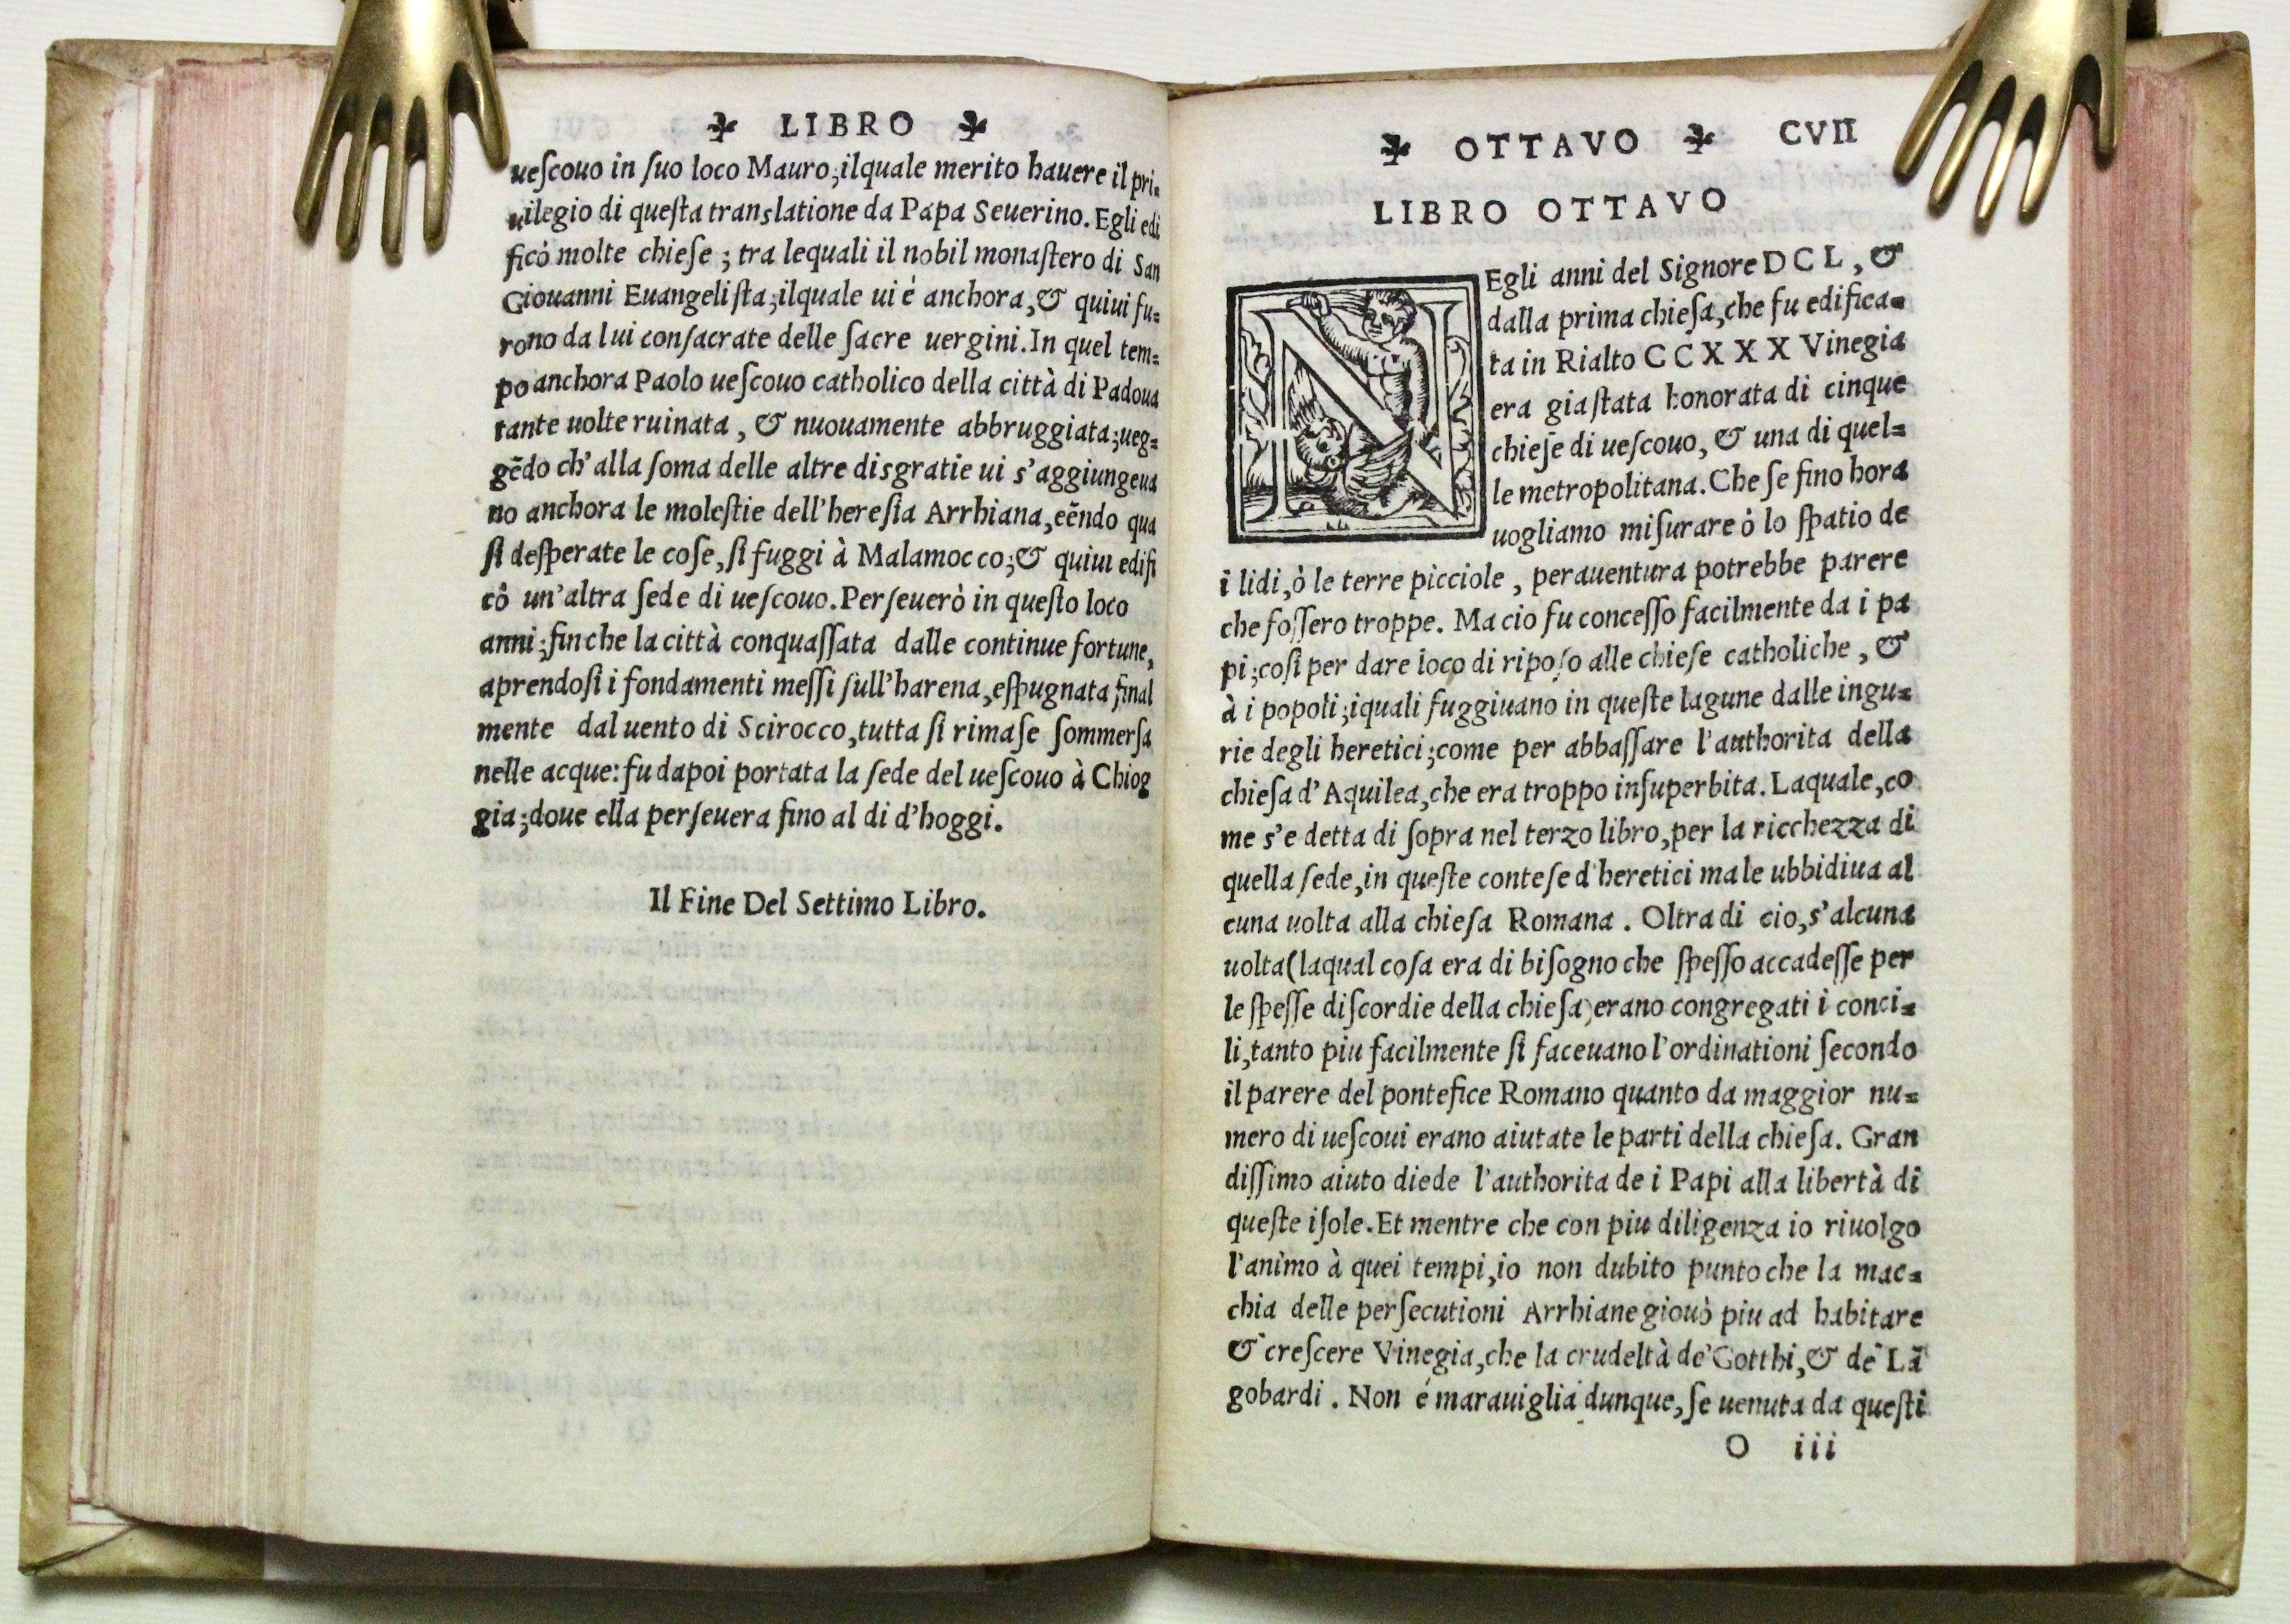 LIBRO
ueſcouo in ſuo loco Mauro;ilquale merito hauere il pri=
uilegio di queſta translatione da Papa Seuerino. Egli edi
ficò molte chieſe ; tra lequali il nobil monaſtero di San
Giouanni Euangeliſta;ilquale ui é anchora, & quiui fu=
rono da lui conſacrate delle ſacre uergini. In quel tem=
po anchora Paolo ueſcouo catholico della città di Padoua
tante uolte ruinata , & nuouamente abbruggiata;ueg=
gēdo ch'alla ſoma delle altre disgratie ui s'aggiungeua
no anchora le moleſtie dell'hereſia Arrhiana,eēndo qua
ſi deſperate le coſe, ſi fuggi à Malamocco;& quiui edifi
cô un'altra ſede di ueſcouo. Perſeuerò in queſto loco
anni;finche la città conquaſſata dalle continue fortune,
aprendoſi i fondamenti meſſi ſull'harena,eſpugnata final
mente dal uento di Scirocco,tutta ſi rimaſe ſommerſa
nelle acque:fu dapoi portata la ſede del ueſcouo à Chiog
gia;doue ella perſeuera fino al di d'hoggi.
Il Fine Del Settimo Libro.
OTTAVO CVII
LIBRO OTTAVO
NEgli anni del Signore DCL, &
dalla prima chieſa,che fu edifica=
ta in Rialto CCXXX Vinegia
era gia ſtata honorata di cinque
chieſe di ueſcouo, & una di quel=
le metropolitana. Che ſe fino hora
uogliamo miſurare ò lo ſpatio de
i lidi,ò le terre picciole , perauentura potrebbe parere
che foſſero troppe. Ma cio fu conceſſo facilmente da i pa
pi;coſi per dare loco di ripoſo alle chieſe catholiche , &
à i popoli;iquali fuggiuano in queſte lagune dalle ingu=
rie degli heretici;come per abbaſſare l'authorita della
chieſa d'Aquilea,che era troppo inſuperbita. Laquale,co
me s'e detta di ſopra nel terzo libro,per la ricchezza di
quella ſede,in queſte conteſe d'heretici male ubbidiua al
cuna uolta alla chieſa Romana . Oltra di cio,s'alcuna
uolta(laqual coſa era di biſogno che ſpeſſo accadeſſe per
le ſpeſſe diſcordie della chieſa)erano congregati i conci=
li,tanto piu facilmente ſi faceuano l'ordinationi ſecondo
il parere del pontefice Romano quanto da maggior nu=
mero di ueſcoui erano aiutate le parti della chieſa. Gran
diſſimo aiuto diede l'authorita de i Papi alla libertà di
queſte iſole. Et mentre che con piu diligenza io riuolgo
l'animo à quei tempi,io non dubito punto che la mac=
chia delle perſecutioni Arrhiane giouò piu ad habitare
& creſcere Vinegia,che la crudeltà de'Gotthi,& de'Lā
gobardi . Non é marauiglia dunque, ſe uenuta da queſti
O iii